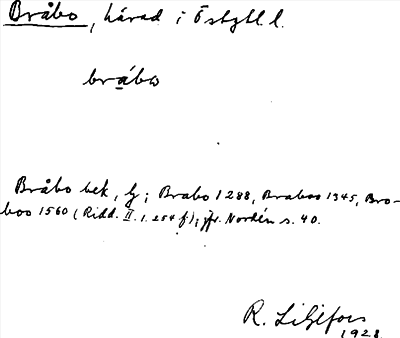 Bråbo, härad i Östgtl. l.
bråbo
Bråbo bek, G; Brabo 1288, Braboo 1345, Bro-
boo 1560 (Ridd. II. 1. 254 f); jfr. Nordén s. 40.
R. Liljefors
1928